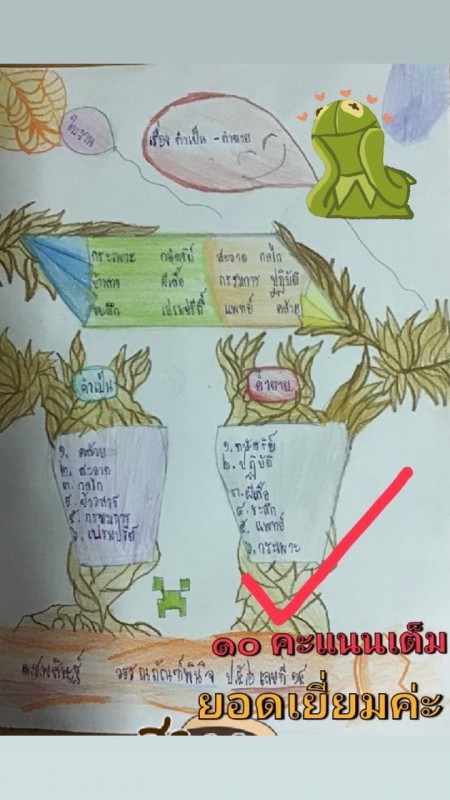 ใบงาน
เรื่อง คำเป็น - คำตาย
กระเพาะ กษัตริย์ สะอาด กลไก
ข้าวสาร ผีเสื้อ กรรมการ ปฏิบัติ
ระลึก เปรมปรีดิ์ แพทย์ คล้าย
คำเป็น
๑. คล้าย
๒. สะอาด
๓. กลไก
๔. ข้าวสาร
๕. กรรมการ
๖. เปรมปรีดิ์
คำตาย
๑. กษัตริย์
๒. ปฏิบัติ
๓. ผีเสื้อ
๔. ระลึก
๕. แพทย์
๖. กระเพาะ
๑๐ คะแนนเต็ม
วรรณภัณฑ์พินิจ เลขที่ ๑๕
ยอดเยี่ยมค่ะ